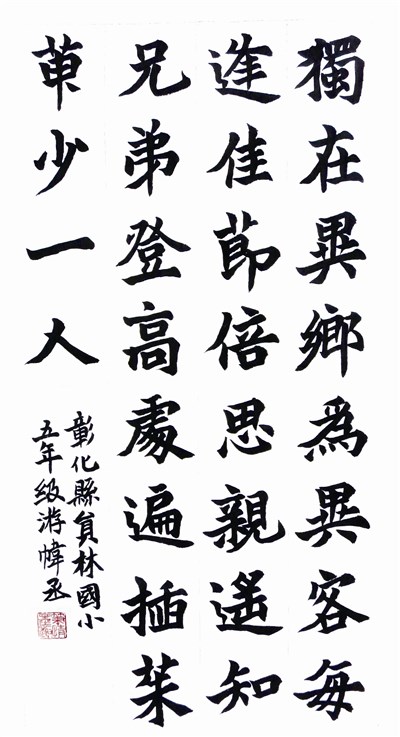 獨在異鄉為異客每
逢佳節倍思親遙知
兄弟登高處遍插茱
萸少一人
彰化縣員林國小
五年級游幃丞